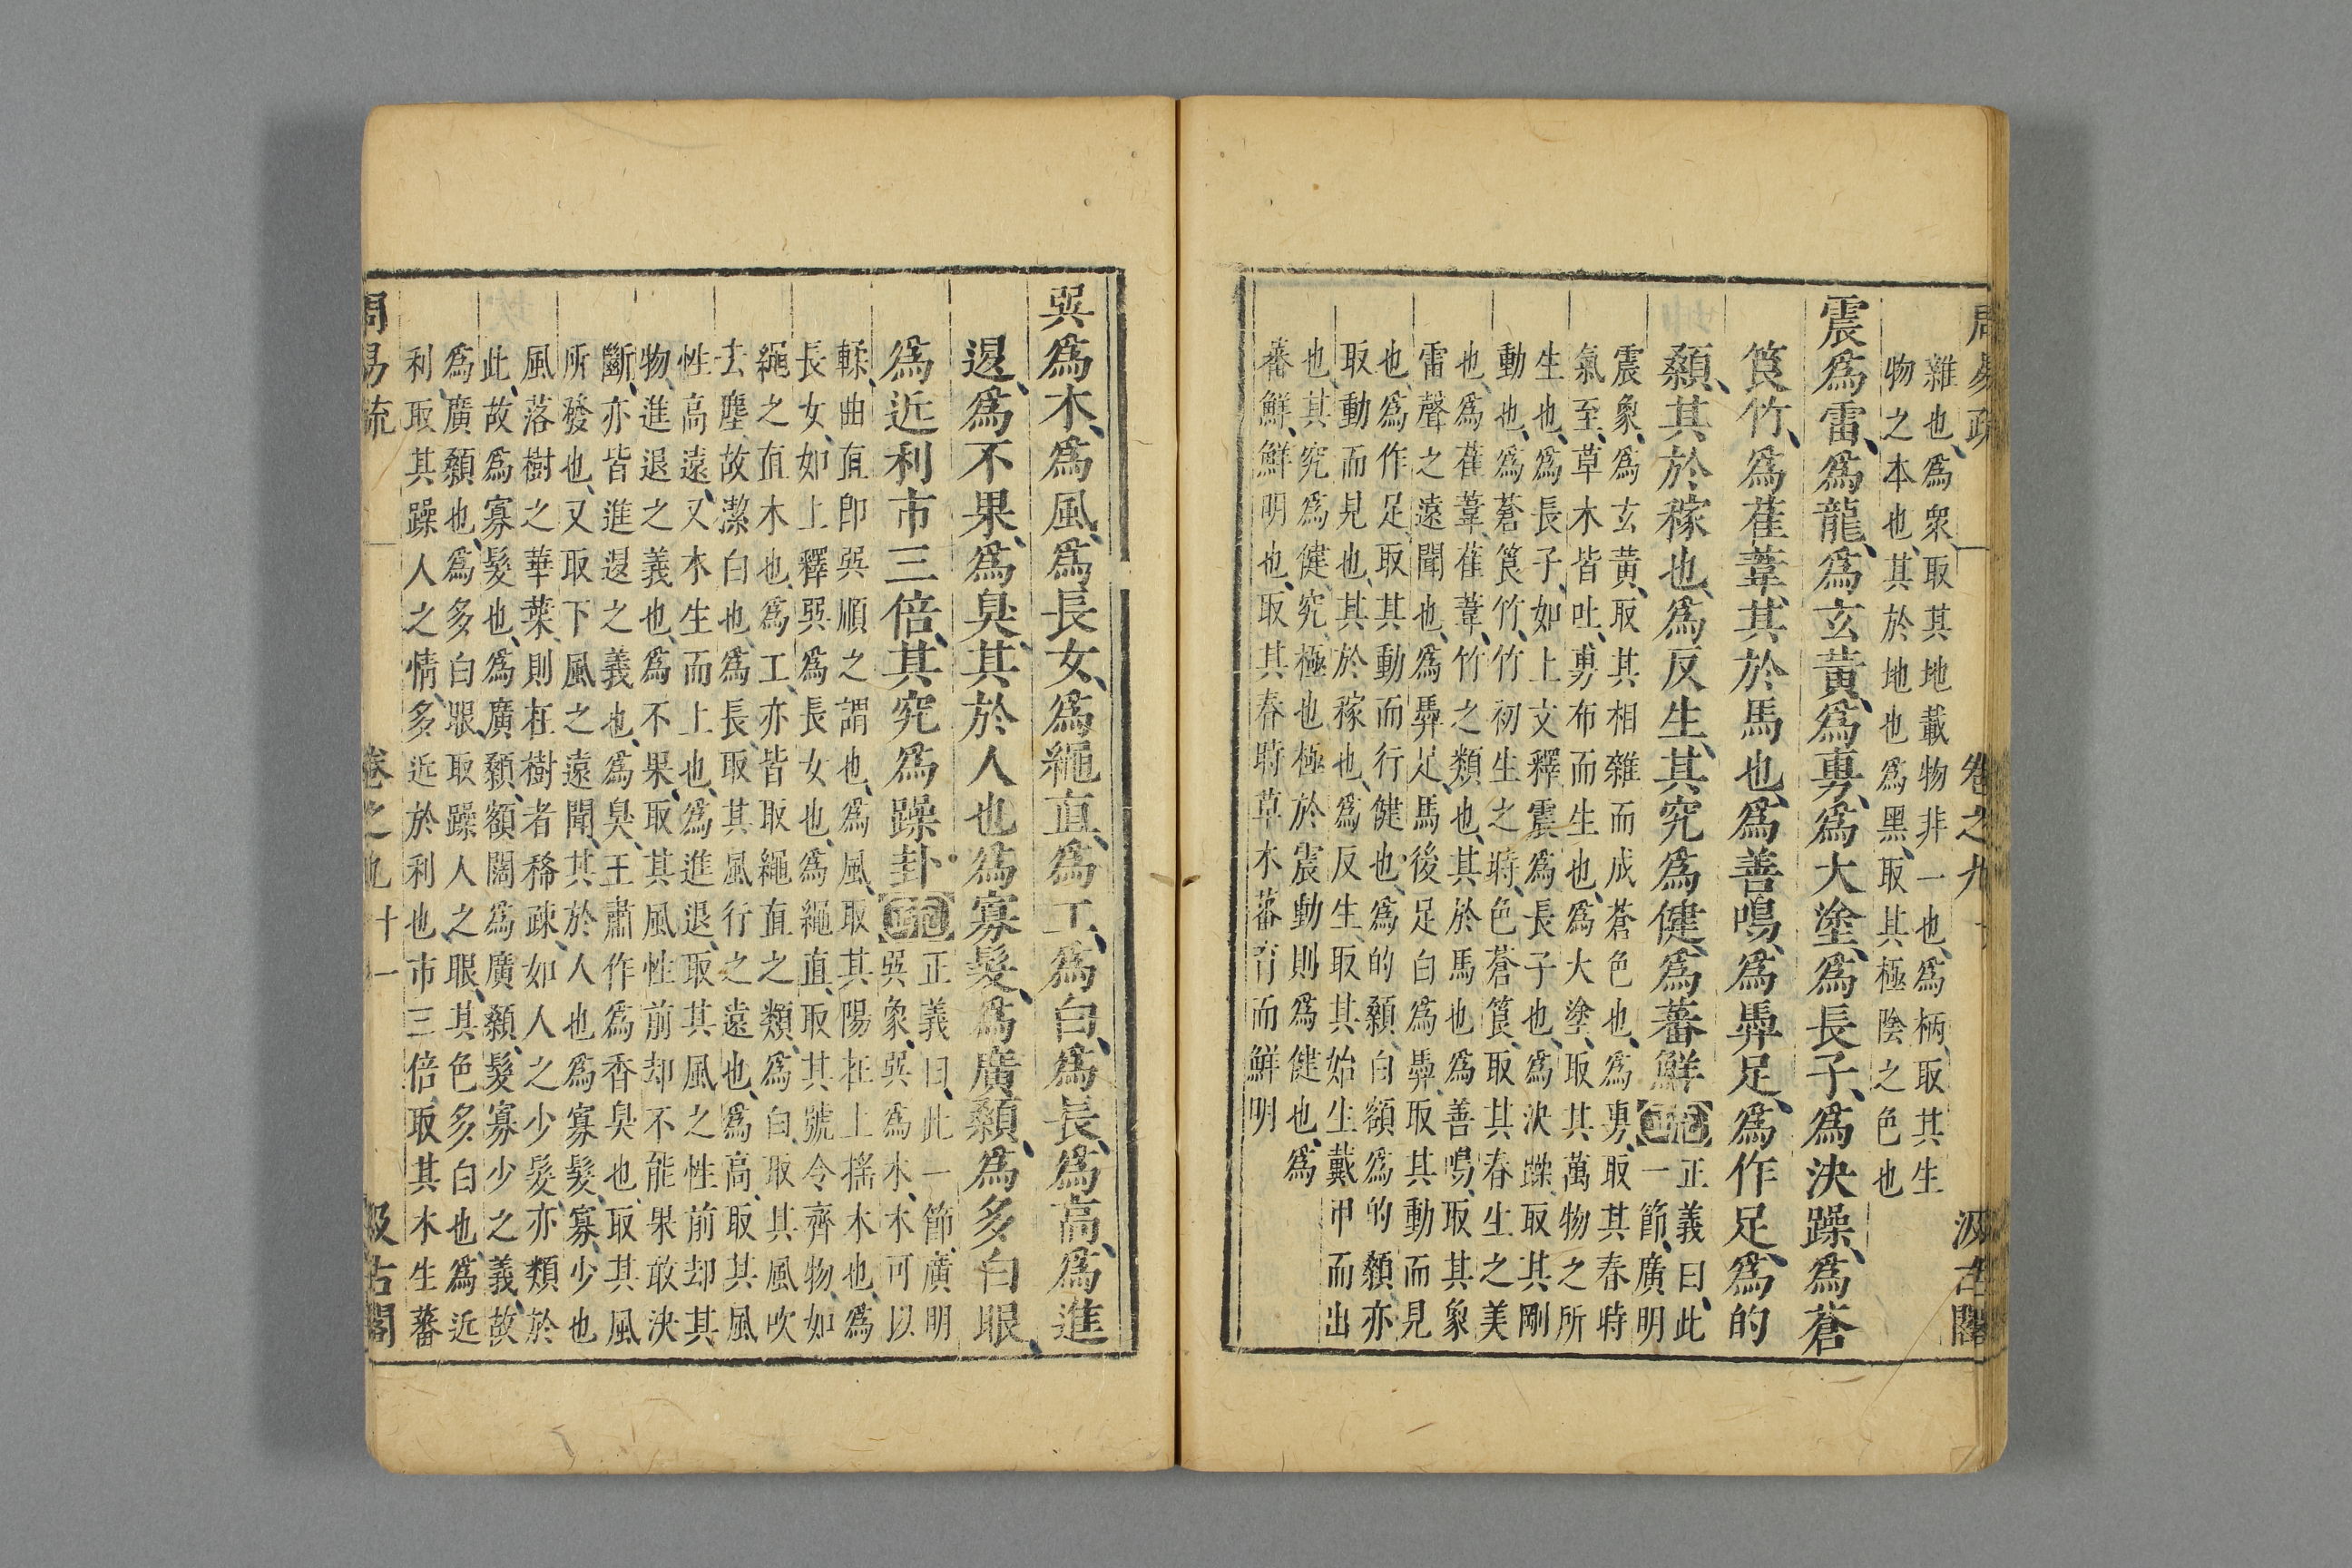 周易疏 卷之九 汲古閣
雜也爲衆取其地載物非一也爲柄取其生
物之本也其於地也爲黑取其極陰之色也
震爲雷爲龍爲玄黃爲旉爲大塗爲長子爲決躁爲蒼
筤竹爲萑葦其於馬也爲善鳴爲馵足爲作足爲的
顙其於稼也爲反生其究爲健爲蕃鮮疏正義曰此
一節廣明
震象爲玄黃取其相雜而成蒼色也爲旉取其春時
氣至草木皆吐旉布而生也爲大塗取其萬物之所
生也爲長子如上文釋震爲長子也爲決躁取其剛
動也爲蒼筤竹竹初生之時色蒼筤取其春生之美
也爲萑葦萑葦竹之類也其於馬也爲善鳴取其象
雷聲之遠聞也爲馵足馬後足白爲馵取其動而見
也爲作足取其動而行健也爲的顙白額爲的顙亦
取動而見也其於稼也爲反生取其始生戴甲而出
也其究爲健究極也極於震動則爲健也爲
蕃鮮鮮明也取其春時草木蕃育而鮮明
巽爲木爲風爲長女爲繩直爲工爲白爲長爲高爲進
退爲不果爲臭其於人也爲寡髮爲廣顙爲多白眼
爲近利市三倍其究爲躁卦疏正義曰此一節廣明
巽象巽爲木木可以
輮曲直卽巽順之謂也爲風取其陽在上搖木也爲
長女如上釋巽爲長女也爲繩直取其號令齊物如
繩之直木也爲工亦皆取繩直之類爲白取其風吹
去塵故潔白也爲長取其風行之遠也爲高取其風
性高遠又木生而上也爲進退取其風之性前却其
物進退之義也爲不果取其風性前却不能果敢決
斷亦皆進退之義也爲臭王肅作爲香臭也取其風
所發也又取下風之遠聞其於人也爲寡髮寡少也
風落樹之華葉則在樹者稀疎如人之少髮亦類於
此故爲寡髮也爲廣顙額闊爲廣顙髮寡少之義故
爲廣顙也爲多白眼取躁人之眼其色多白也爲近
利取其躁人之情多近於利也市三倍取其木生蕃
周易疏 卷之九 十一 汲古閣